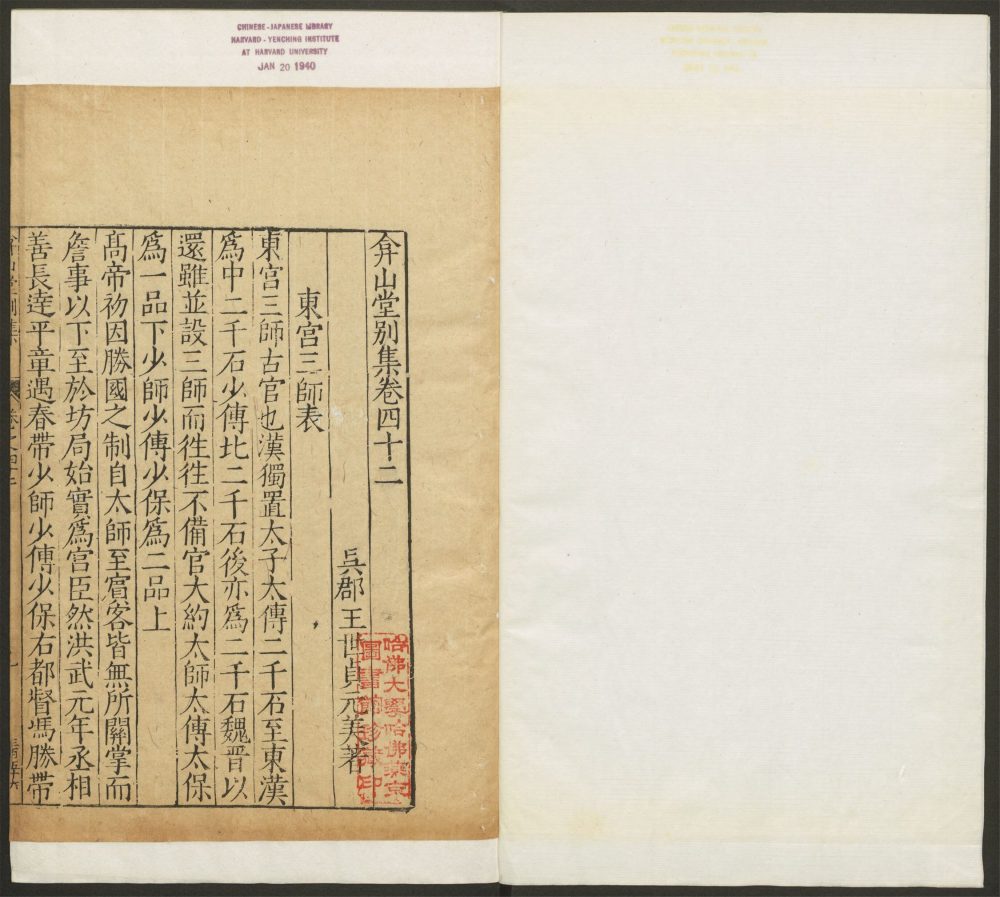 CHINESE-JAPANESE LIBRARY
HARVARD-YENCHING INSTITUTE
AT HARVARD UNIVERSITY
JAN 20 1940
弇山堂别集卷四十二
吳郡王世貞元美著
東宫三師表
東宫三師古官也漢獨置太子太傅二千石至東漢
爲中二千石少傅比二千石後亦爲二千石魏晋以
還雖並設三師而徃徃不備官大約太師太傅太保
爲一品下少師少傅少保爲二品上
髙帝初因勝國之制自太師至賔客皆無所關掌而
詹事以下至於坊局始實爲宫臣然洪武元年丞相
善長逹平章遇春帶少師少傅少保右都督馮勝帶
弇山堂别集
卷之四十二
一
哈佛大學哈佛燕京
圖書館珍藏印